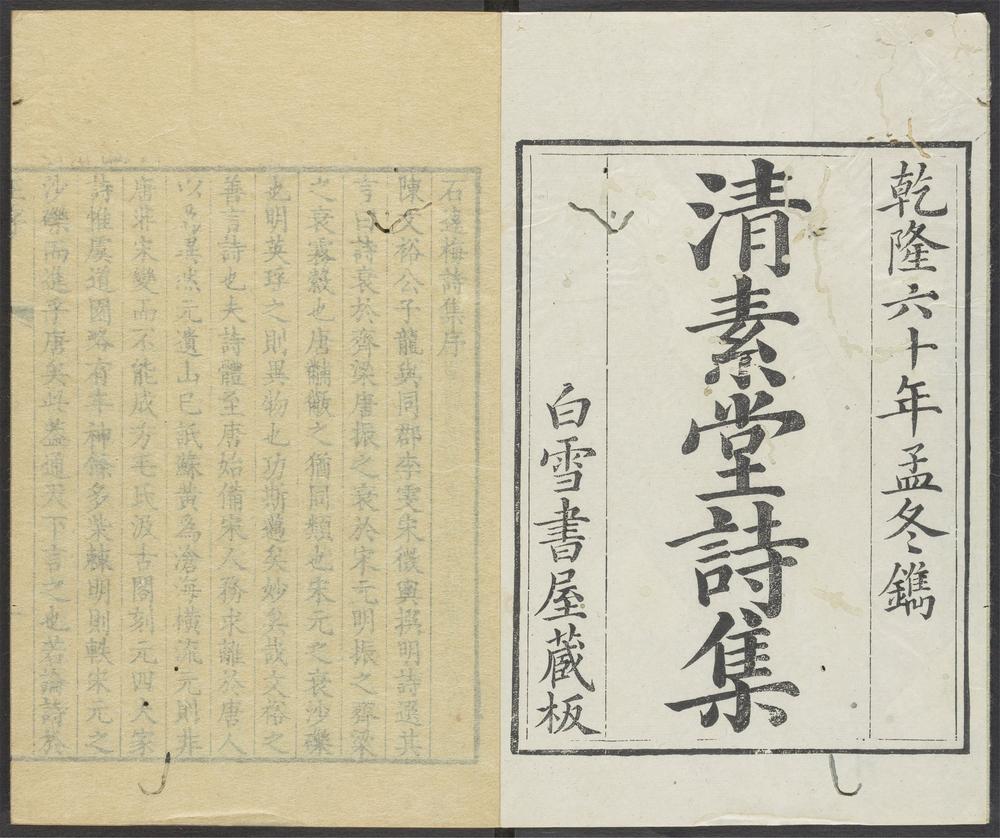 乾隆六十年孟冬鐫
清素堂詩集
白雪書屋蔵板
石遠梅詩集序
陳文裕公子龍與同郡李雯宋徵輿撰明詩選其
言曰詩衰於齊梁唐振之衰於宋元明振之齊梁
之衰霧縠也唐黼黻之猶同類也宋元之衰沙礫
也明英珵之則異物也功斯邁矣妙矣哉文裕之
善言詩也夫詩體至唐始備宋人務求離於唐人
以為異然元遺山已詆蘇黃為滄海橫流元則非
唐非宋變而不能成方毛氏汲古閣刻元四大家
詩惟虞道園略有丰神餘多榮棘明則軼宋元之
沙礫而進乎唐矣此蓋通天下言之也若論詩於